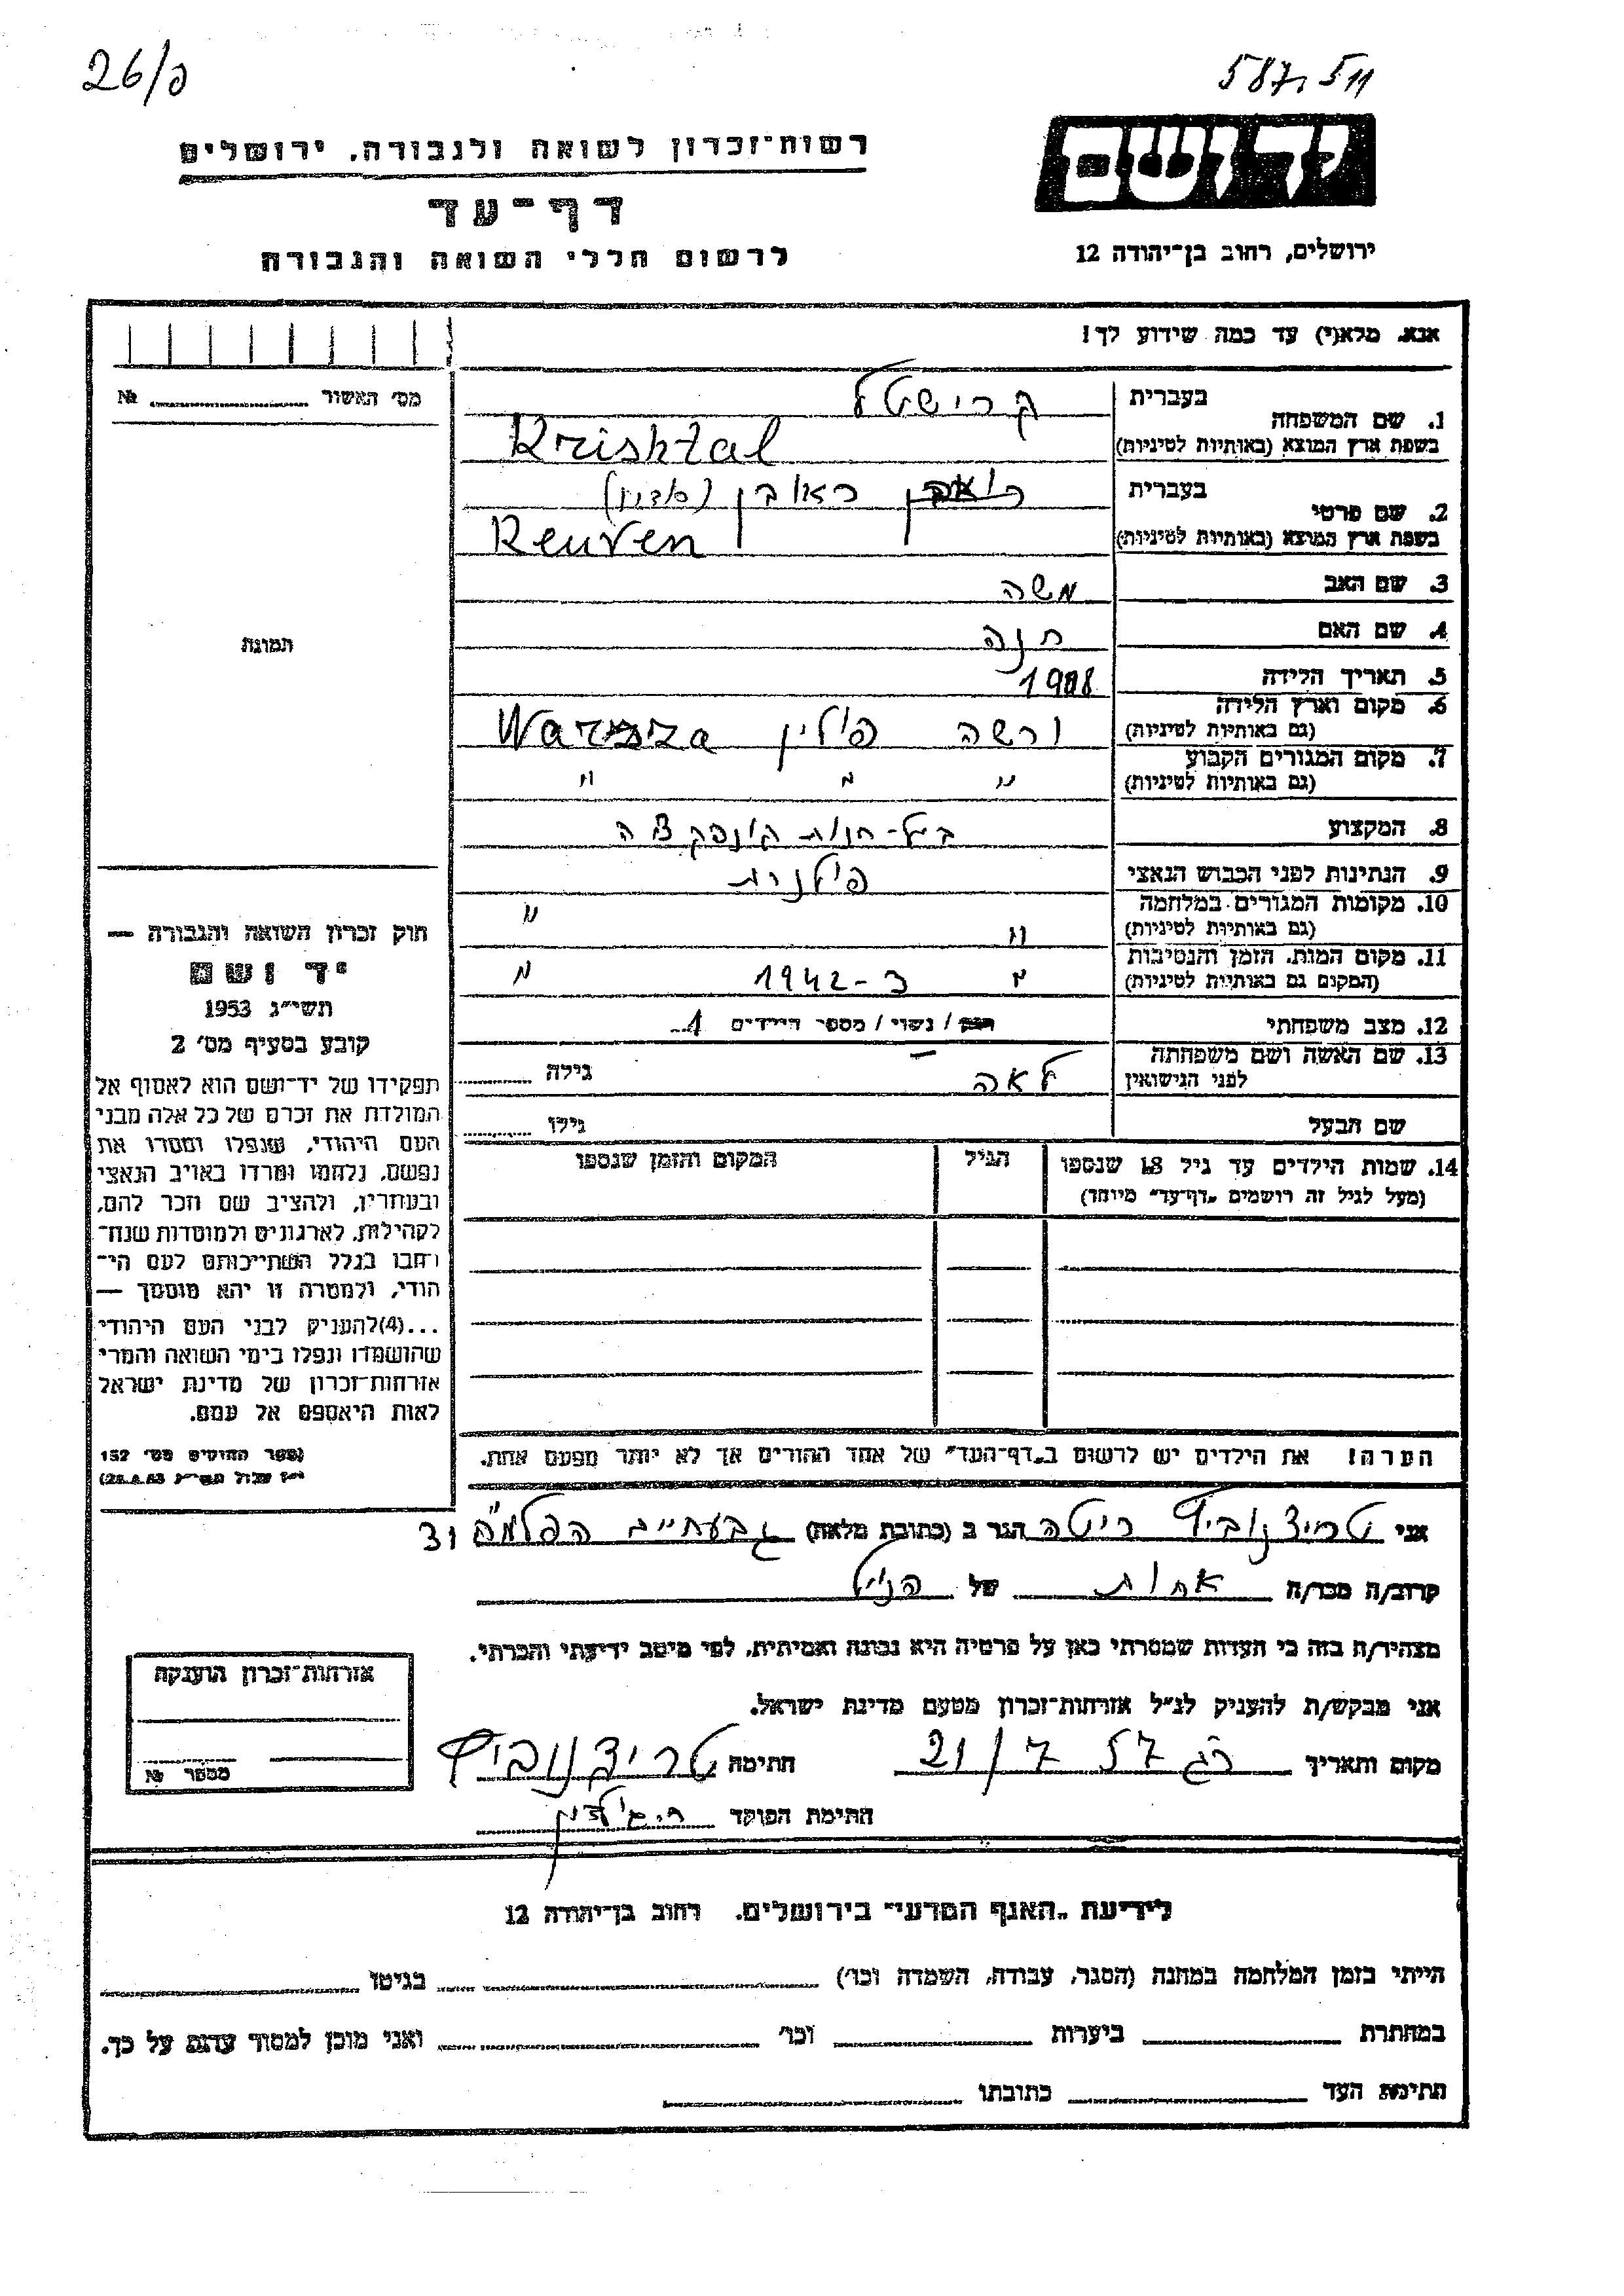 26/פ
587,511
רשות־זכרון לשואה ולגבורה, ירושלים
יד ושם
דף־עד
ירושלים, רחוב בן־יהודה 12
לרשום חללי השואה והגבורה
אנא, מלא(י) עד כמה שידוע לך!
מס׳ האשור № ........
בעברית קרישטל
1. שם המשפחה
בשפת ארץ המוצא (באותיות לטיניות) Krishtal
בעברית ראובן
2. שם פרטי
בשפת ארץ המוצא (באותיות לטיניות) Reuven
3. שם האב משה
תמונת
4. שם האם חנה
5. תאריך הלידה 1908
6. מקום וארץ הלידה
(גם באותיות לטיניות) ורשה פולין Warsza
7. מקום המגורים הקבוע
(גם באותיות לטיניות) " " "
8. המקצוע בעל-חנות קונפקציה
9. הנתינות לפני הכבוש הנאצי פולנית
10. מקומות המגורים במלחמה "
(גם באותיות לטיניות) "
11. מקום המות, הזמן והנסיבות
(המקום גם באותיות לטיניות) " ב-1942 "
12. מצב משפחתי רווק / נשוי / מספר הילדים 1
13. שם האשה ושם משפחתה
לפני הנישואין לאה - גילה ........
שם הבעל גילו ........
14. שמות הילדים עד גיל 18 שנספו הגיל המקום והזמן שנספו
(מעל לגיל זה רושמים „דף־עד״ מיוחד)
חוק זכרון השואה והגבורה —
יד ושם
תשי״ג 1953
קובע בסעיף מס׳ 2
תפקידו של יד־ושם הוא לאסוף אל
המולדת את זכרם של כל אלה מבני
העם היהודי, שנפלו ומסרו את
נפשם, נלחמו ומרדו באויב הנאצי
ובעוזריו, ולהציב שם וזכר להם,
לקהילות, לארגונים ולמוסדות שנח־
רחבו בגלל השתייכותם לעם הי־
הודי, ולמטרה זו יהא מוסמך —
...(4)להעניק לבני העם היהודי
שהושמדו ונפלו בימי השואה והמרי
אזרחות־זכרון של מדינת ישראל
לאות היאספם אל עמם.
(ספר החוקים מס׳ 132
הערה! את הילדים יש לרשום ב„דף־העד״ של אחד ההורים אך לא יותר מפעם אחת.
אני ריטה הגר ב (כתובת מלאה) גבעתיים הפלמ״ח
קרוב/ה מכר/ה אחות של הנ״ל
מצהיר/ה בזה כי העדות שמסרתי כאן על פרטיה היא נכונה ואמיתית, לפי מיטב ידיעתי והכרתי.
אני מבקש/ת להעניק לנ״ל אזרחות־זכרון מטעם מדינת ישראל.
מקום ותאריך ר״ג 21/7 57 חתימה
חתימת הפוקד
אזרחות־זכרון הוענקה
מספר №
לידיעת „האגף המדעי״ בירושלים, רחוב בן־יהודה 12
הייתי בזמן המלחמה במחנה (הסגר, עבודה, השמדה וכו׳) ........ בגיטו ........
במחתרת ........ ביערות ........ וכו׳ ........ ואני מוכן למסור עדות על כך.
חתימת העד ........ כתובתו ........